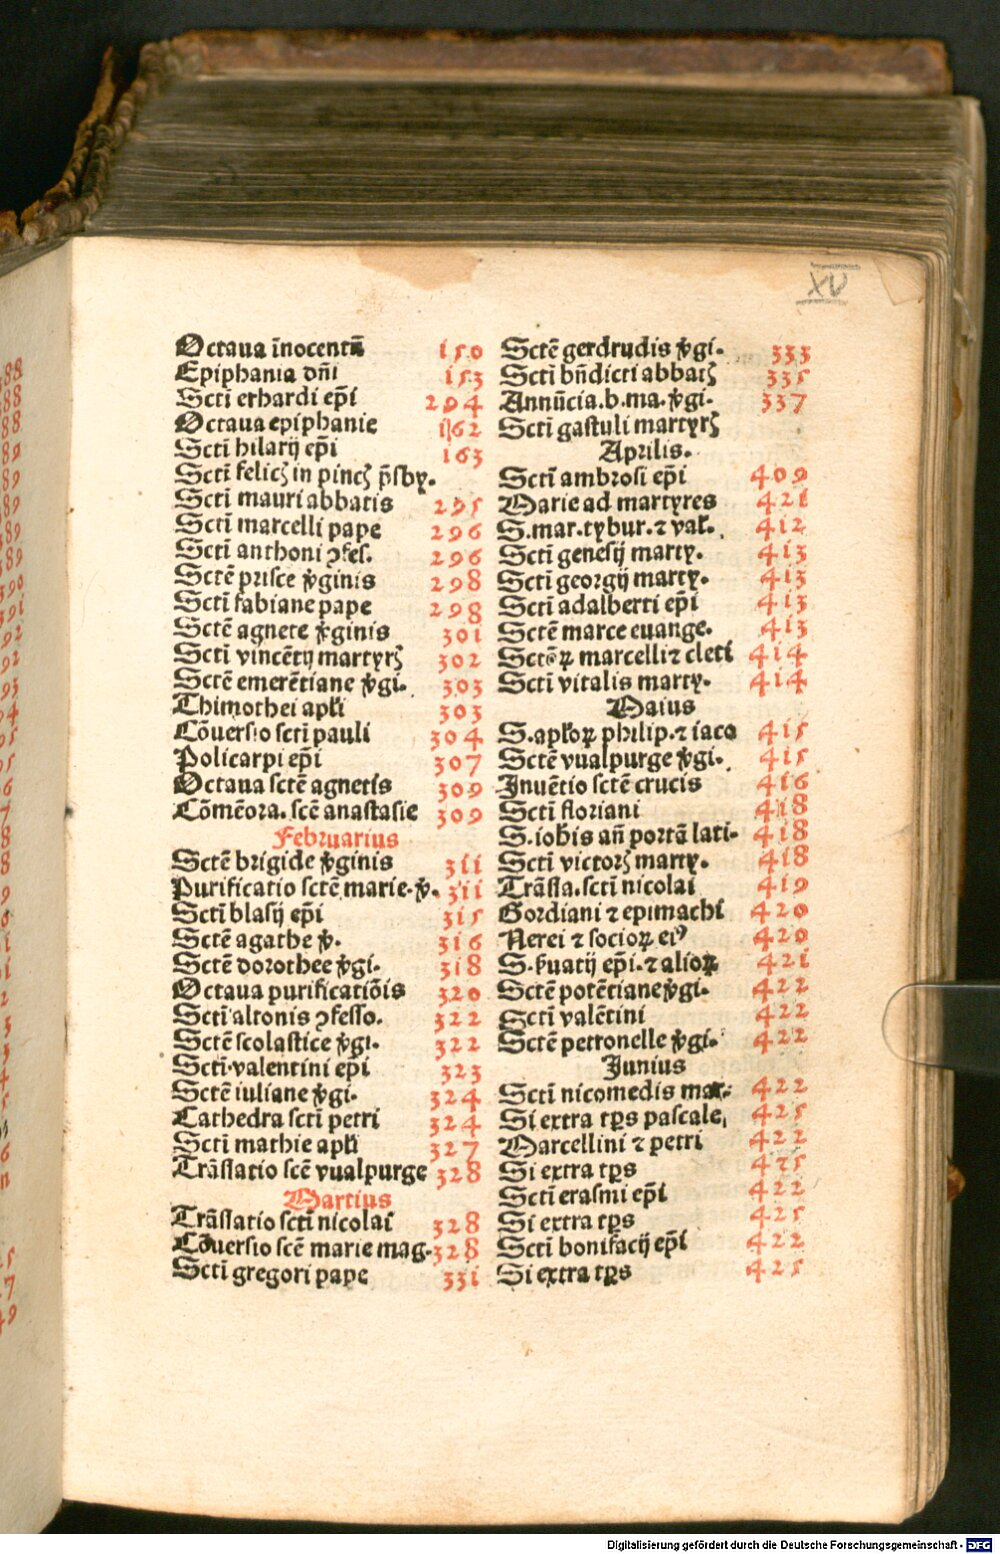 XV
Octaua īnocentū 150
Epiphania dn̄i 153
Sctī erhardi ep̄i 294
Octaua epiphanie 162
Sctī hilarij ep̄i 163
Sctī felicꝫ in pincꝫ p̄sby.
Sctī mauri abbatis 295
Sctī marcelli pape 296
Sctī anthoni ꝯfes. 296
Sctē prisce v̄ginis 298
Sctī fabiane pape 298
Sctē agnete v̄ginis 301
Sctī vincētij martyrꝫ 302
Sctē emerētiane v̄gi. 303
Thimothei apl̄i 303
Cōuersio scti pauli 304
Policarpi ep̄i 307
Octaua sctē agnetis 309
Cōmēora. scē anastasie 309
Februarius
Sctē brigide v̄ginis 311
Purificatio sctē marie. v̄. 311
Sctī blasij ep̄i 315
Sctē agathe v̄. 316
Sctē dorothee v̄gi. 318
Octaua purificatiōis 320
Sctī altonis ꝯfesso. 322
Sctē scolastice v̄gi. 322
Scti valentini ep̄i 323
Sctē iuliane v̄gi. 324
Cathedra scti petri 324
Sctī mathie apl̄i 327
Trāslatio scē vualpurge 328
Martius
Trāslatio sctī nicolai 328
Cōuersio scē marie mag. 328
Sctī gregori pape 331
Sctē gerdrudis v̄gi. 333
Sctī bn̄dicti abbatꝫ 335
Annūcia. b. ma. v̄gi. 337
Sctī gastuli martyrꝫ
Aprilis.
Sctī ambrosi ep̄i 409
Marie ad martyres 421
S. mar. tybur. ⁊ val̄. 412
Sctī genesij marty. 413
Sctī georgij marty. 413
Sctī adalberti ep̄i 413
Sctē marce euange. 413
Sctōꝝ marcelli ⁊ cleti 414
Sctī vitalis marty. 414
Maius
S. apl̄oꝝ philip. ⁊ iaco 415
Sctē vualpurge v̄gi. 415
Inuētio sctē crucis 416
Sctī floriani 418
S. ioh̄is an̄ portā lati. 418
Sctī victorꝫ marty. 418
Trāsla. scti nicolai 419
Gordiani ⁊ epimachi 420
Nerei ⁊ socioꝝ eiꝰ 420
S. s̄uatij ep̄i. ⁊ alioꝝ 421
Sctē potētiane v̄gi. 422
Scti valētini 422
Sctē petronelle v̄gi. 422
Junius
Sctī nicomedis mar. 422
Si extra tp̄s pascale, 425
Marcellini ⁊ petri 422
Si extra tp̄s 425
Sctī erasmi ep̄i 422
Si extra tp̄s 425
Sctī bonifacij ep̄i 422
Si extra tp̄s 425
Digitalisierung gefördert durch die Deutsche Forschungsgemeinschaft - DFG